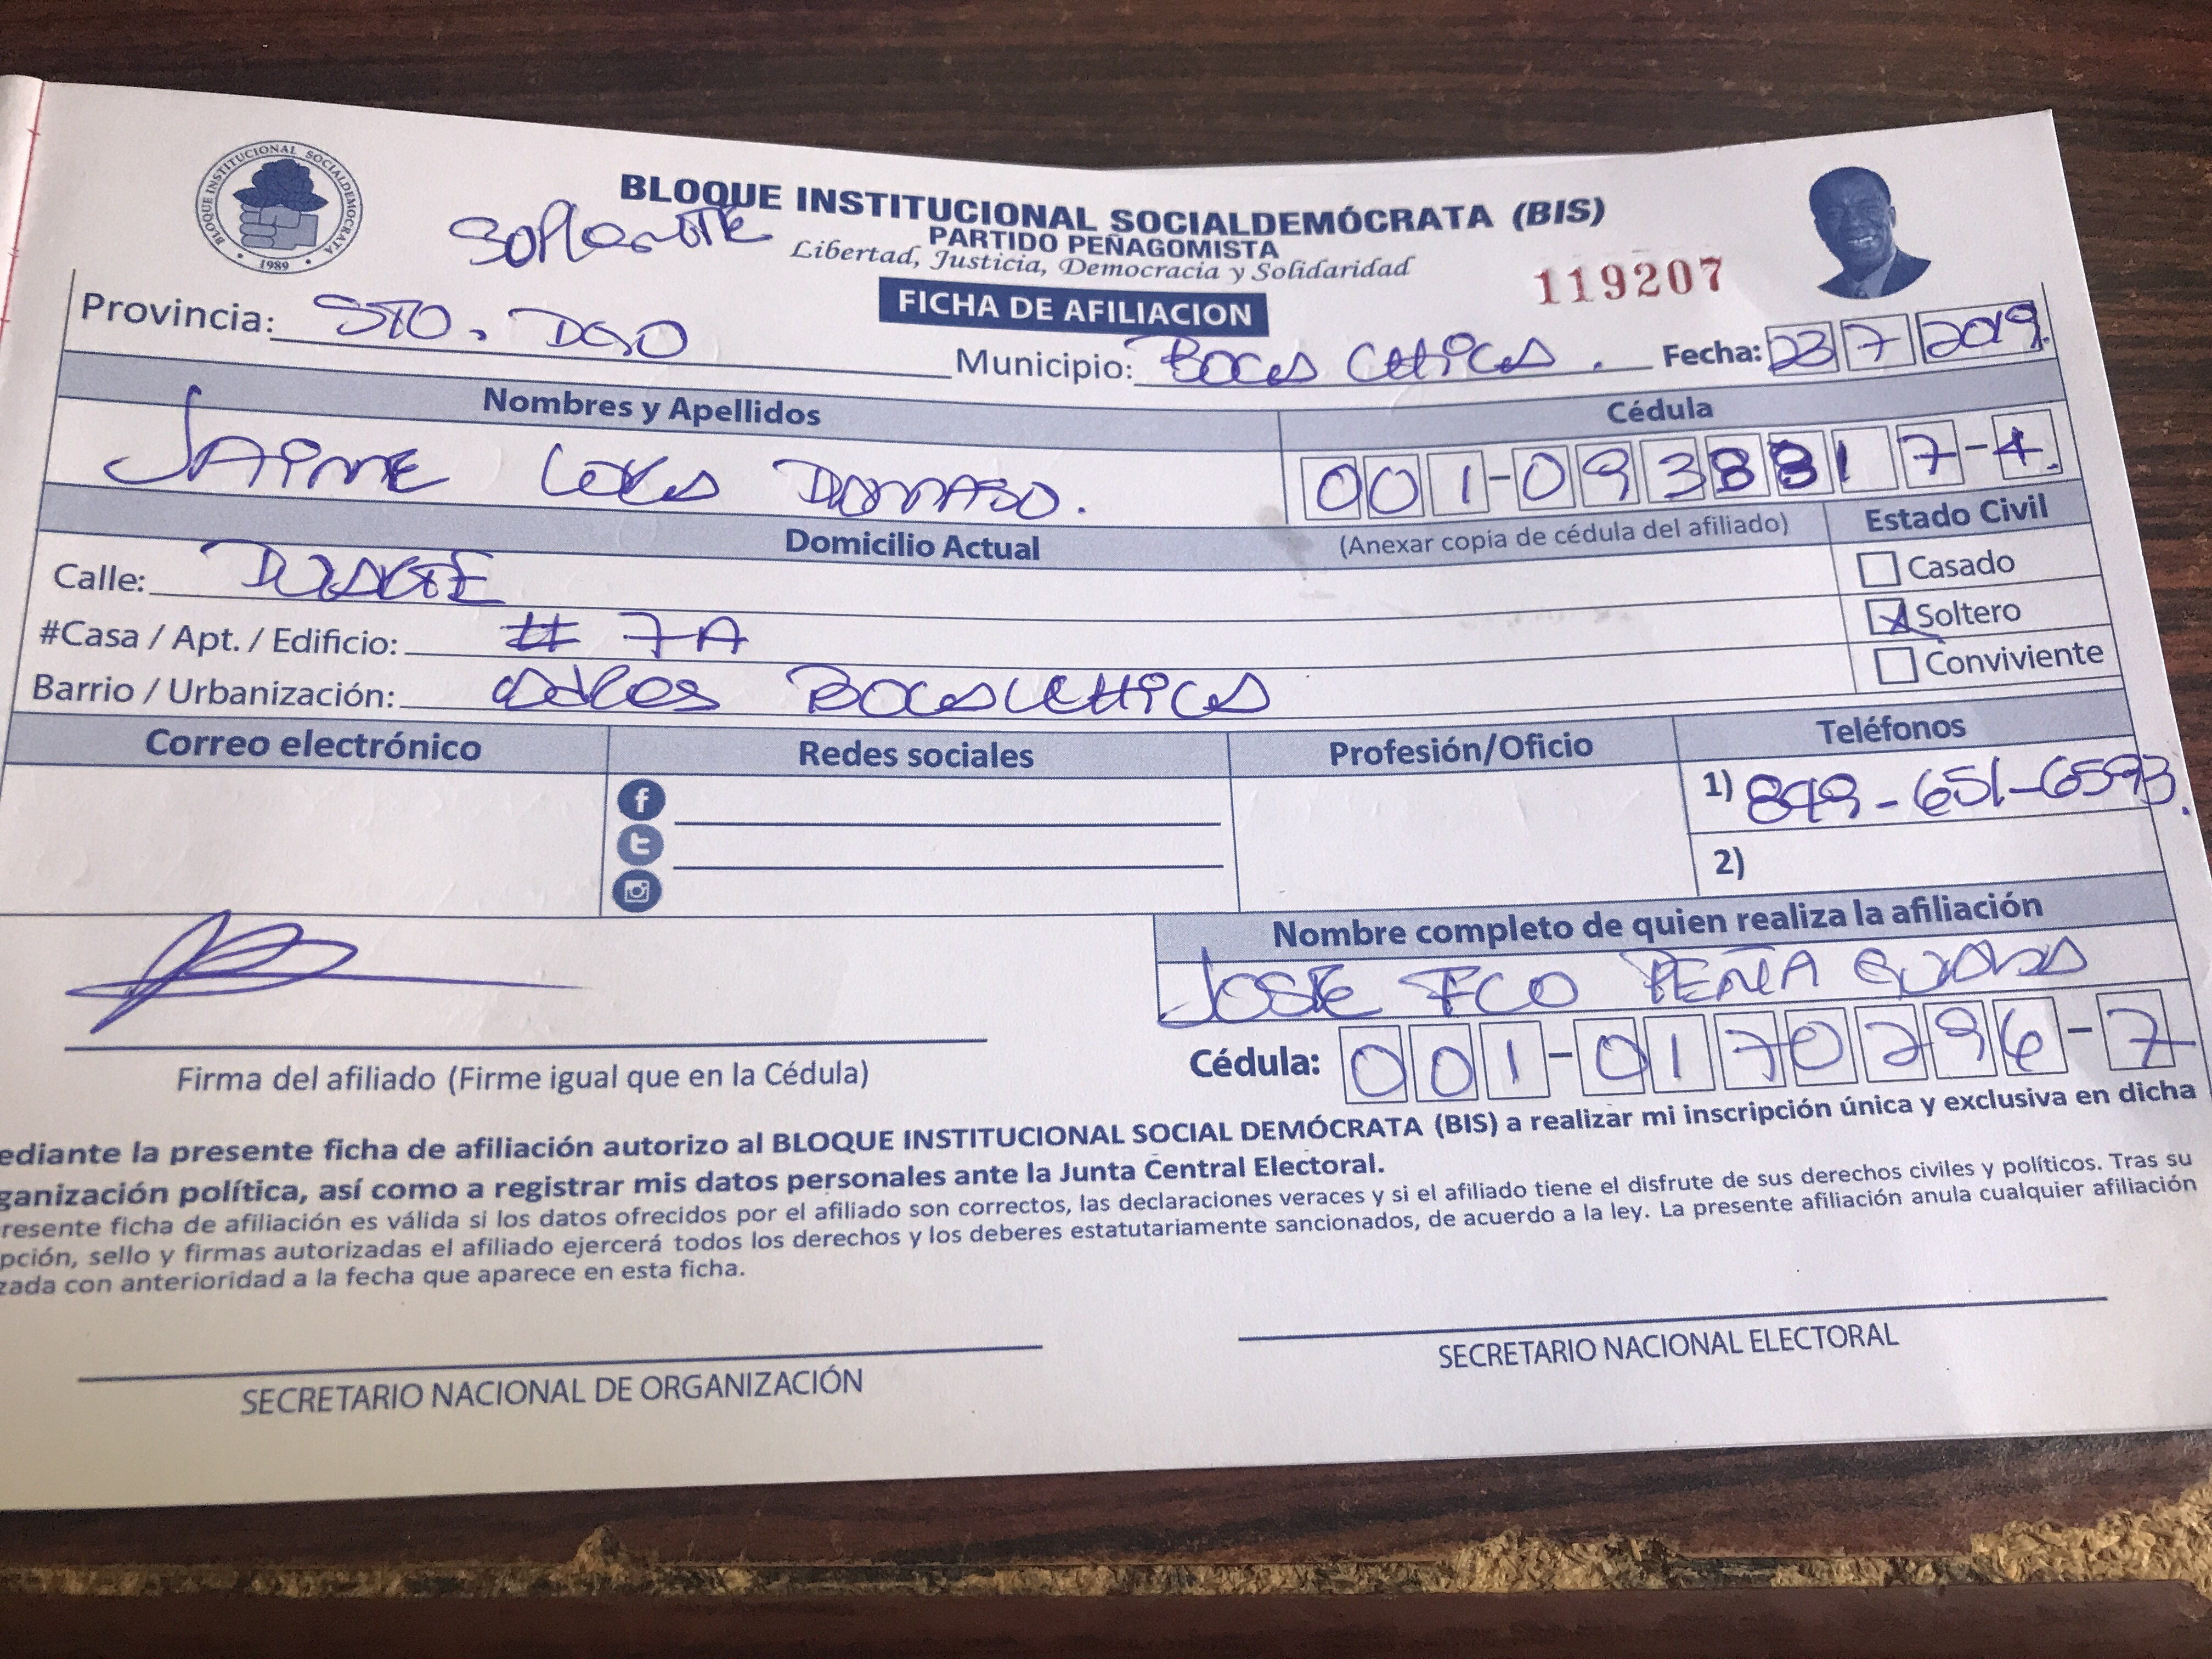 BLOQUE INSTITUCIONAL SOCIALDEMOCRATA
1989
BLOQUE INSTITUCIONAL SOCIALDEMÓCRATA (BIS)
PARTIDO PEÑAGOMISTA
Libertad, Justicia, Democracia y Solidaridad
119207
FICHA DE AFILIACION
Provincia: STO. DGO
Municipio: BOCA CHICA. Fecha: 23 7 2019.
Nombres y Apellidos
Cédula
JAIME DOMASO.
001-0938817-4.
Domicilio Actual
(Anexar copia de cédula del afiliado)
Estado Civil
Calle: DUARTE
Casado
#Casa / Apt. / Edificio: # 7A
Soltero
Barrio / Urbanización: BOCA CHICA
Conviviente
Correo electrónico
Redes sociales
Profesión/Oficio
Teléfonos
1) 849-651-6593.
2)
Nombre completo de quien realiza la afiliación
JOSE FCO PEÑA
Cédula: 001-0170296-7
Firma del afiliado (Firme igual que en la Cédula)
ediante la presente ficha de afiliación autorizo al BLOQUE INSTITUCIONAL SOCIAL DEMÓCRATA (BIS) a realizar mi inscripción única y exclusiva en dicha
ganización política, así como a registrar mis datos personales ante la Junta Central Electoral.
resente ficha de afiliación es válida si los datos ofrecidos por el afiliado son correctos, las declaraciones veraces y si el afiliado tiene el disfrute de sus derechos civiles y políticos. Tras su
pción, sello y firmas autorizadas el afiliado ejercerá todos los derechos y los deberes estatutariamente sancionados, de acuerdo a la ley. La presente afiliación anula cualquier afiliación
zada con anterioridad a la fecha que aparece en esta ficha.
SECRETARIO NACIONAL DE ORGANIZACIÓN
SECRETARIO NACIONAL ELECTORAL